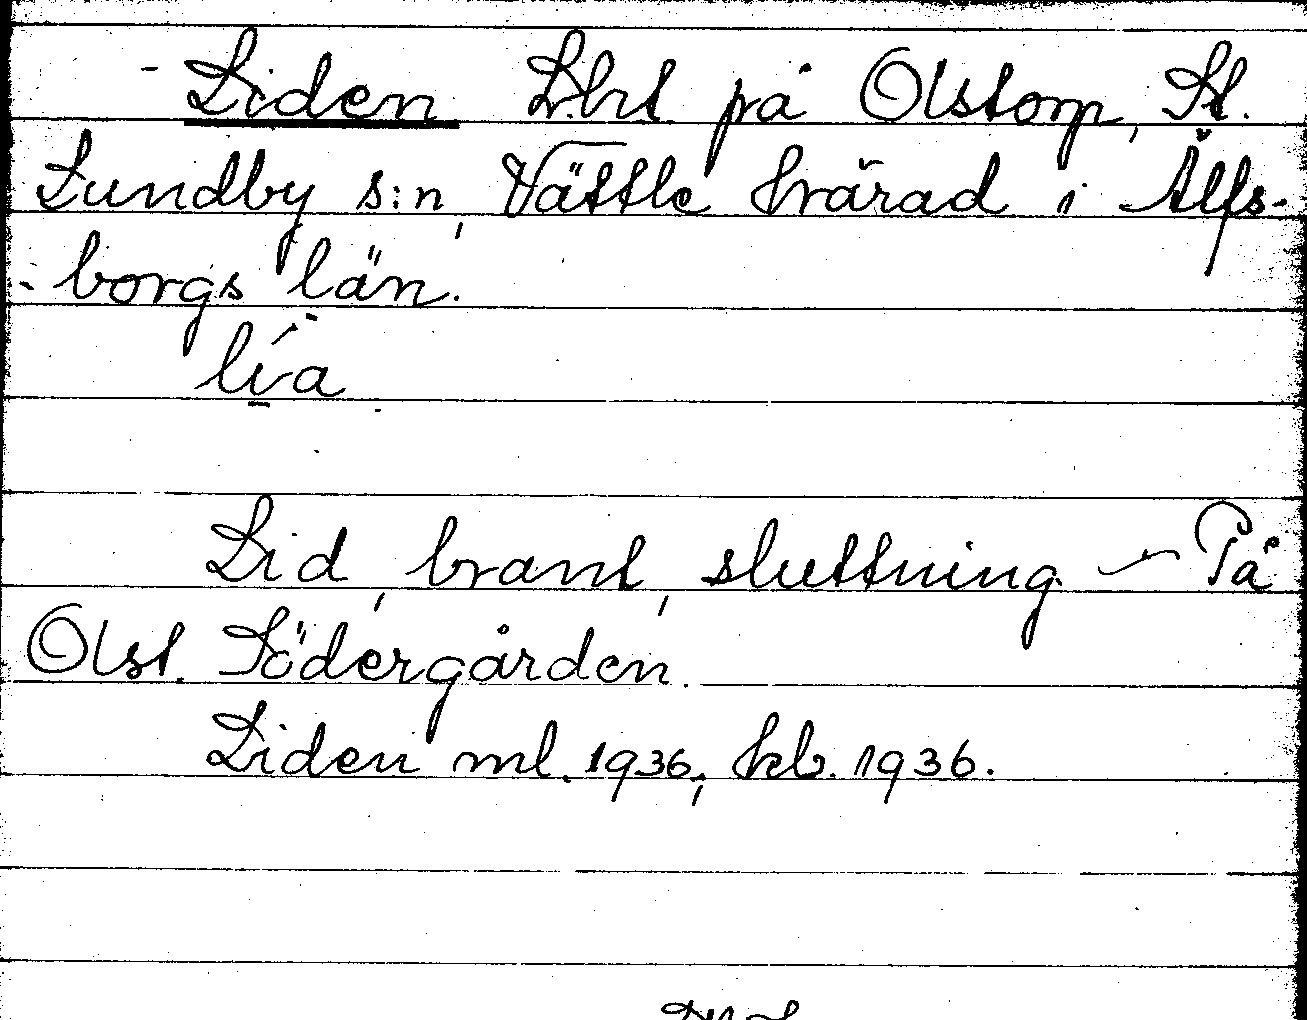 Liden L:ht på Olstorp, St.
Lundby s:n, Vättle härad i Älfs-
borgs län.
li̱´a
Lid, brant, sluttning – På
Olst. Södergården.
Liden ml. 1936, hkb. 1936.